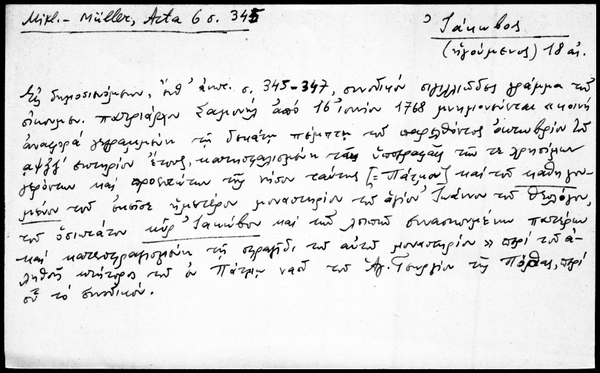 Mikl.- Müller, Acta 6 σ. 345
Ἰάκωβος
(ἡγούμενος) 18 αἰ.
Εἰς δημοσιευόμενον, ἔνθ' ἀνωτ. σ. 345-347, συνοδικόν σιγιλλιῶδες γράμμα τοῦ
οἰκουμεν. πατριάρχου Σαμουήλ ἀπό 16 Ἰουνίου 1768 μνημονεύεται «κοινή
ἀναφορά γεγραμμένη τῇ δεκάτῃ πέμπτῃ τοῦ παρελθόντος ὀκτωβρίου τοῦ
αψξζ' σωτηρίου ἔτους, κατησφαλισμένη ταῖς ὑπογραφαῖς τῶν τε χρησίμων
γερόντων καί προεστώτων τῆς νήσου ταύτης [= Πάτμου] καί τοῦ καθηγου-
μένου τοῦ ἐκεῖσε ἡμετέρου μοναστηρίου τοῦ ἁγίου Ἰωάννου τοῦ Θεολόγου,
τοῦ ὁσιωτάτου κύρ Ἰακώβου καί τῶν λοιπῶν συνασκουμένων πατέρων
καί κατεσφραγισμένη τῇ σφραγῖδι τοῦ αὐτοῦ μοναστηρίου» περί τοῦ ἀ-
ληθοῦς κτήτορος τοῦ ἐν Πάτμῳ ναοῦ τοῦ Ἁγ. Γεωργίου τῆς περί
οὗ τό συνοδικόν.